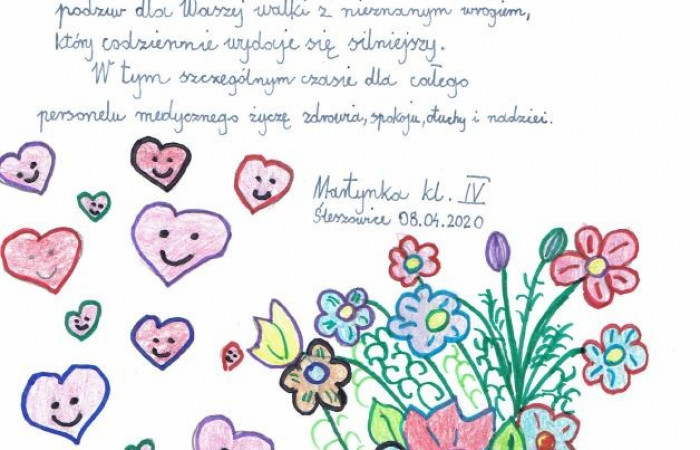 podziw dla Waszej walki z nieznanym wrogiem,
który codziennie wydaje się silniejszy.
W tym szczególnym czasie dla całego
personelu medycznego życzę zdrowia, spokoju, otuchy i nadziei.
Martynka kl. IV
Śleszowice 08.04.2020